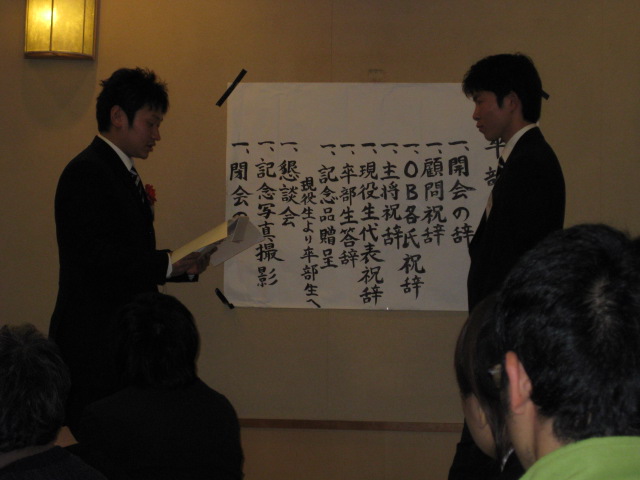 卒部
一、開会の辞
一、顧問祝辞
一、OB各氏祝辞
一、主将祝辞
一、現役生代表祝辞
一、卒部生答辞
一、記念品贈呈
現役生より卒部生へ
一、懇談会
一、記念写真撮影
一、閉会の